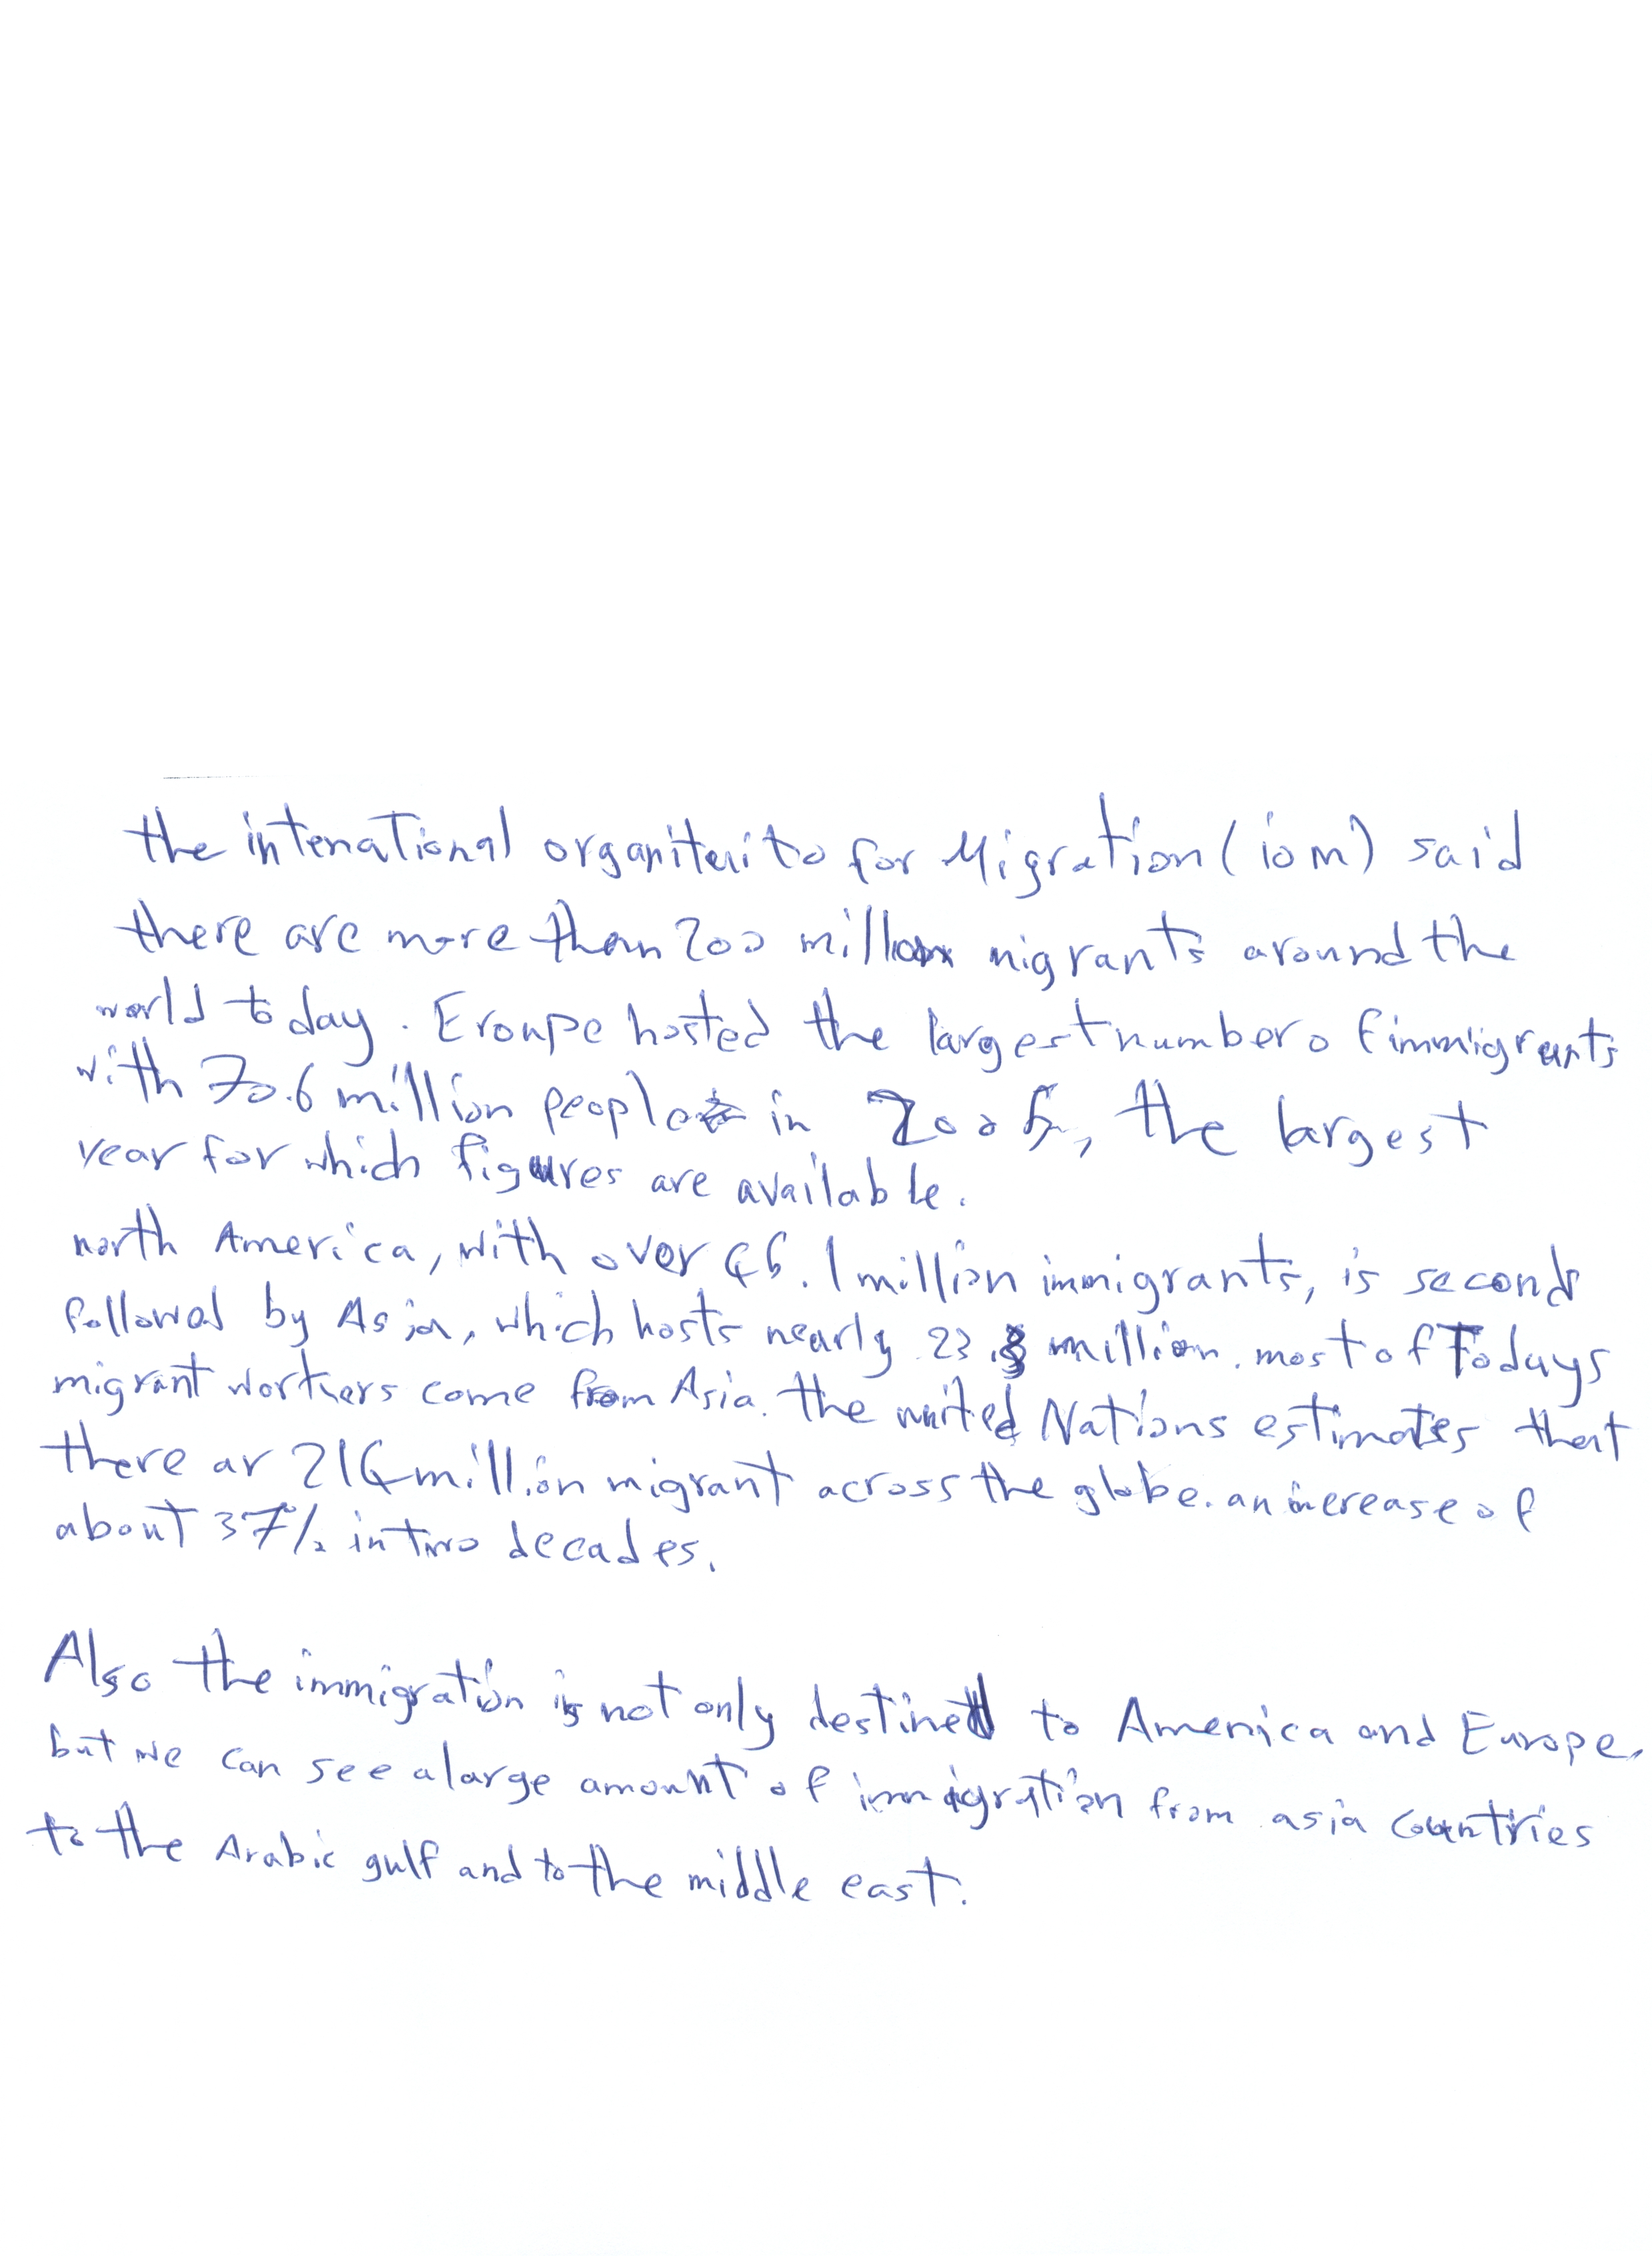 the intenational organiteuito for Migration (iom) said
there are more than 200 million migrants around the
world today. Eroupe hosted the largest number of immigrants
with 70.6 million people in 2005, the largest
year for which figures are available.
north America, with over 46.1 million immigrants, is second
followed by Asia, which hosts nearly 23.3 million. most of Todays
migrant workers come from Asia. the united Nations estimates that
there ar 214 million migrant across the globe. an increase of
about 37% in two decades.
Also the immigration is not only destined to America and Europe,
but we can see a large amount of immigration from asia countries
to the Arabic gulf and to the middle east.